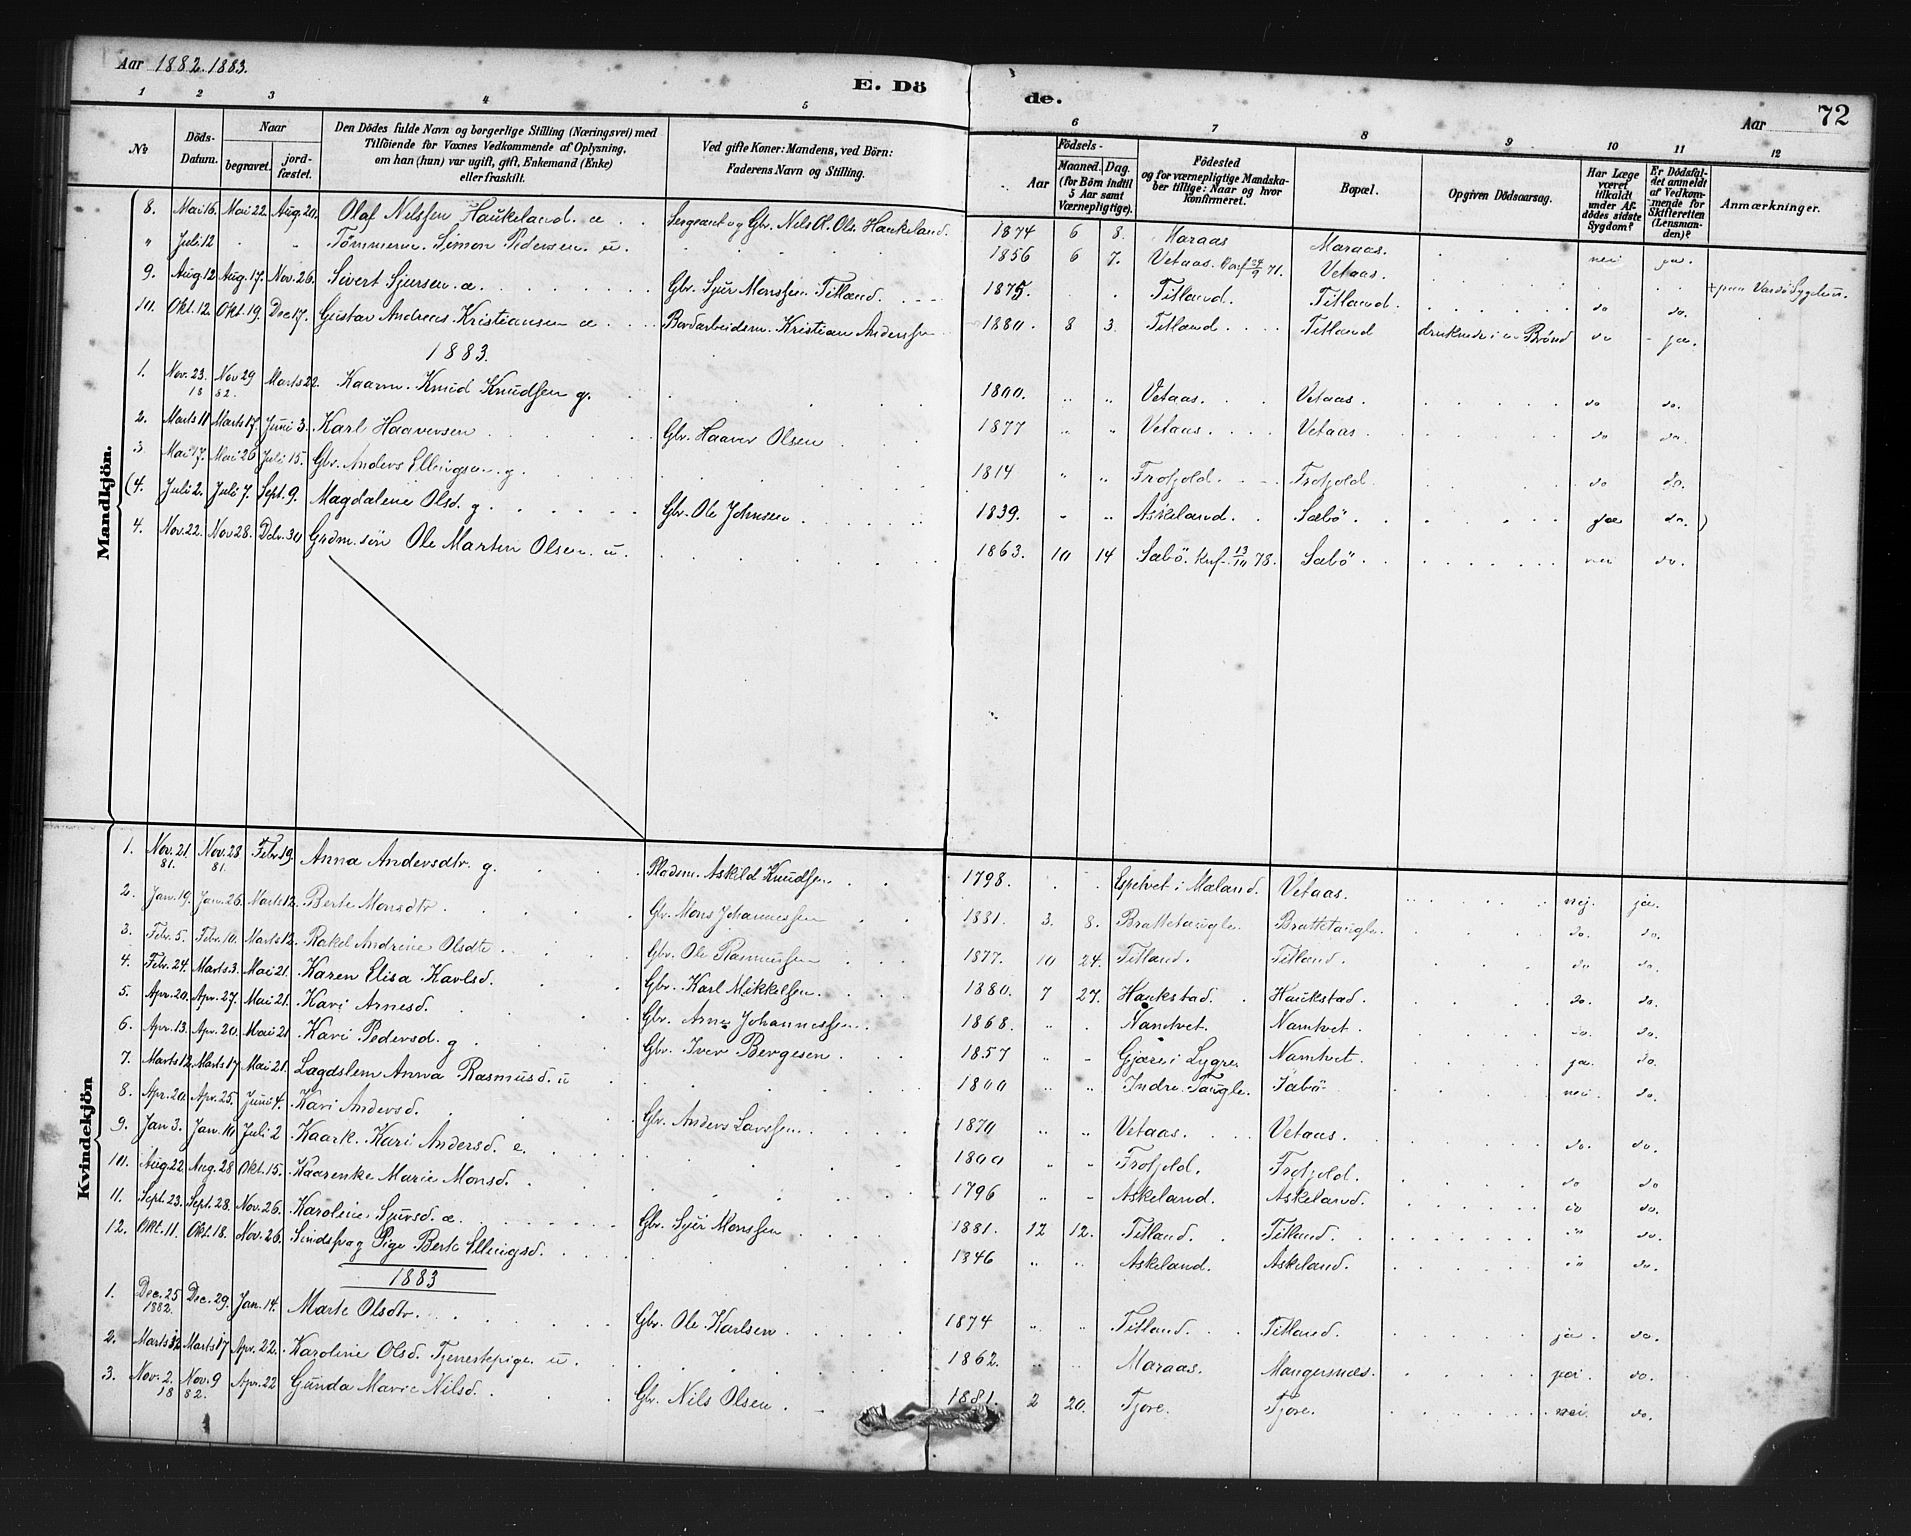 Aar 1882.1883.
E. Dö
de.
Aar
72
1 2 3 4 5 6 7 8 9 10 11 12
№
Döds-Datum.
Naar
begravet.
jord-fæstet.
Den Dödes fulde Navn og borgerlige Stilling (Næringsvei) med
Tilföiende for Voxnes Vedkommende af Oplysning,
om han (hun) var ugift, gift, Enkemand (Enke)
eller fraskilt.
Ved gifte Koner: Mandens, ved Börn:
Faderens Navn og Stilling.
Födsels-
Aar
Maaned. Dag.
(for Börn indtil
5 Aar samt
Værnepligtige).
Födested
og for værnepligtige Mandska-
ber tillige: Naar og hvor
konfirmeret.
Bopæl.
Opgiven Dödsaarsag.
Har Læge
været
tilkaldt
under Af-
dödes sidste
Sygdom?
Er Dödsfal-
det anmeldt
af Vedkom-
mende for
Skifteretten
(Lensman-
den)?
Anmærkninger.
Mandkjön.
8. Mai 16. Mai 22. Aug. 20. Olaf Nilssen Haukeland. æ Sergeant og Gbr. Nils A. Ols. Haukeland. 1874 6 8. Maraas Maraas. nei ja.
" Juli 12 " " Tømmerm. Simon Pedersen. u. 1856 6 7. Vetaas. Konf 24/9 71. Vetaas.
9. Aug. 12 Aug. 17. Nov. 26. Sivert Sjursen. æ. Gbr. Sjur Monssen Titland. 1875. Titland. Titland. do do.
10. Okt. 12. Okt. 19. Dec 17. Gustav Andreas Kristiansen æ Bordarbeidsm. Kristian Anderssen 1880. 8 3. Titland. Titland druknede i en Brönd do ja.
1883.
1. Nov. 23. Nov 29 Marts 22. Kaarm. Knud Knudsen g. 1800. " " Vetaas. Vetaas. do do.
18 82.
2. Marts 11 Marts 17. Juni 3. Karl Haaversen Gbr. Haaver Olsen 1877 " " Vetaas. Vetaas. do do.
3 Mai 17. Mai 26 Juli 15. Gbr. Anders Ellingsen. g. 1814 " " Frofjold. Frofjold. do do.
(4. Juli 2. Juli 7. Sept. 9. Magdalene Olsd. g. Gbr. Ole Johnsen. 1839. " " Askeland. Sæbö. ja do.)
4. Nov. 22. Nov 28. Dcbr. 30 Grdm. sön Ole Martin Olsen. u. 1863. 10 14 Sæbö. Knf. 13/10 78. Sæbö. nei do.
Kvindekjön
1. Nov. 21. Nov. 28 Febr 19. Anna Andersdtr. g. Pladsm. Askild Knudsen. 1798. Espetvet i Mæland. Vetaas. nej. ja.
81. 81.
2. Jan. 19. Jan. 26. Marts 12. Berte Monsdtr. Gbr. Mons Johannessen 1881. 3. 8. Brattetaugle. Brattetaugle. do. do.
3. Febr. 5. Febr. 10. Marts 12. Rakel Andrine Olsdtr Gbr. Ole Rasmussen 1877. 10 24. Titland. Titland. do do.
4. Febr. 24. Marts 3. Mai 21. Karen Elisa Karlsd. Gbr. Karl Mikkelsen. 1880. 7 27. Haukstad. Haukstad. do. do.
5. Apr. 20. Apr. 27. Mai 21. Kari Arnesd. Gbr. Arne Johannessen. 1868. " " Namtvet. Namtvet. do. do.
6. Apr. 13. Apr. 20. Mai 21 Kari Pedersd. g Gbr. Iver Børgesen 1857 " " Gjære i Lygre. Namtvet. ja do.
7. Marts 12. Marts 17 Mai 21. Lægdslem Anna Rasmusd. u 1800 " " Indre Taugle. Sæbö nei do.
8. Apr. 20. Apr. 25. Juni 4. Kari Andersd. Gbr. Anders Larssen. 1870 " " Vetaas. Vetaas. do. do.
9. Jan 3. Jan. 10 Juli 2 Kaark. Kari Andersd. e. 1800 " " Frofjold. Frofjold. do do
10. Aug. 22. Aug. 28 Okt. 15. Kaarenke Marie Monsd. 1796 " " Askeland. Askeland. do do
11. Sept. 23. Sept. 28. Nov. 26. Karoline Sjursd. æ. Gbr. Sjur Monssen 1881. 12 12. Titland. Titland. " do.
12. Okt. 11. Okt. 18. Nov. 26. Sindssvag Pige Berte Ellingsd. 1846 " " Askeland. Askeland. " do.
1883
1. Dec. 25 Dec. 29. Jan. 14. Marte Olsdtr. Gbr. Ole Karlsen. 1874 " " Titland. Titland. ja do.
1882.
2. Marts 12 Marts 17 Apr. 22. Karoline Olsd. Tjenestepige. u. 1862. " " Maraas. Mangersnes. do.
3. Nov. 2. Nov. 9 Apr. 22 Gunda Marie Nilsd. Gbr. Nils Olsen. 1881. 2 20. Tjore. Tjore. nei. do.
18 82.